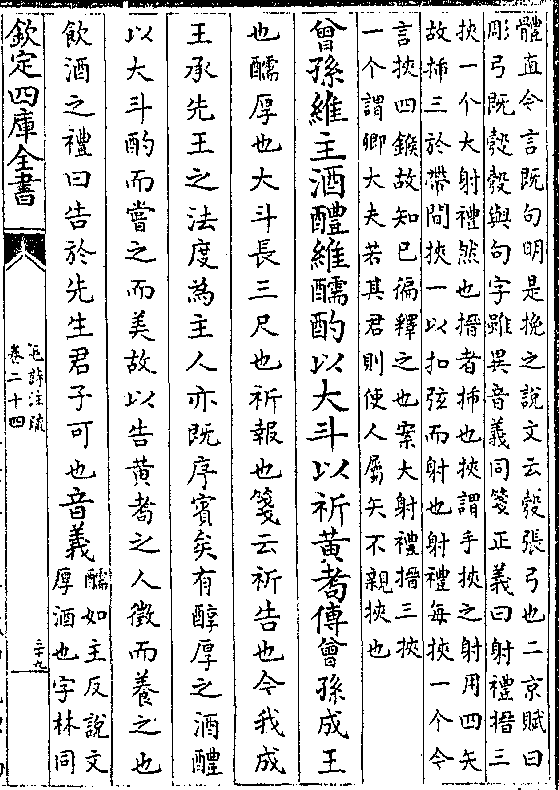 體直今言既句明是挽之說文云彀張弓也二京賦曰
彫弓既彀彀與句字雖異音義同箋正義曰射禮搢三
挾一个大射禮然也搢者揷也挾謂手挾之射用四矢
故揷三於帶間挾一以扣弦而射也射禮每挾一个今
言挾四鍭故知已徧釋之也案大射禮搢三挾
一个謂卿大夫若其君則使人屬矢不親挾也
曾孫維主酒醴維醹酌以大斗以祈黃耉傳曾孫成王
也醹厚也大斗長三尺也祈報也箋云祈告也今我成
王承先王之法度為主人亦既序賓矣有醇厚之酒醴
以大斗酌而嘗之而美故以告黃耉之人徵而養之也
飲酒之禮曰告於先生君子可也音義
醹如主反說文
厚酒也字林同
欽定四庫全書
毛詩注疏
卷二十四
三十九